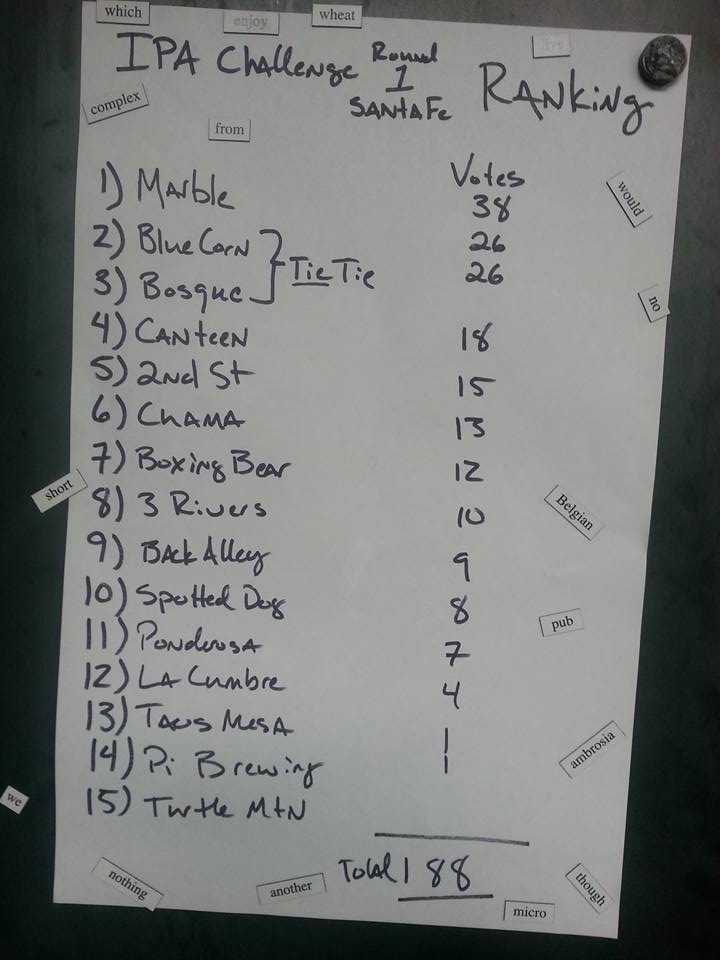 which
enjoy
wheat
IPA Challenge Round 1 SANTA Fe RANKING
complex
from
Votes
1) Marble 38
would
2) Blue Corn 26
Tie Tie
3) Bosque 26
no
4) CANteen 18
5) 2nd St 15
6) ChAMA 13
7) Boxing Bear 12
short
8) 3 Rivers 10
Belgian
9) Back Alley 9
10) Spotted Dog 8
pub
11) PONderosA 7
12) LA Cumbre 4
13) Taos MesA 1
ambrosia
14) Pi Brewing 1
we
15) Turtle MtN
Total 188
nothing
another
though
micro